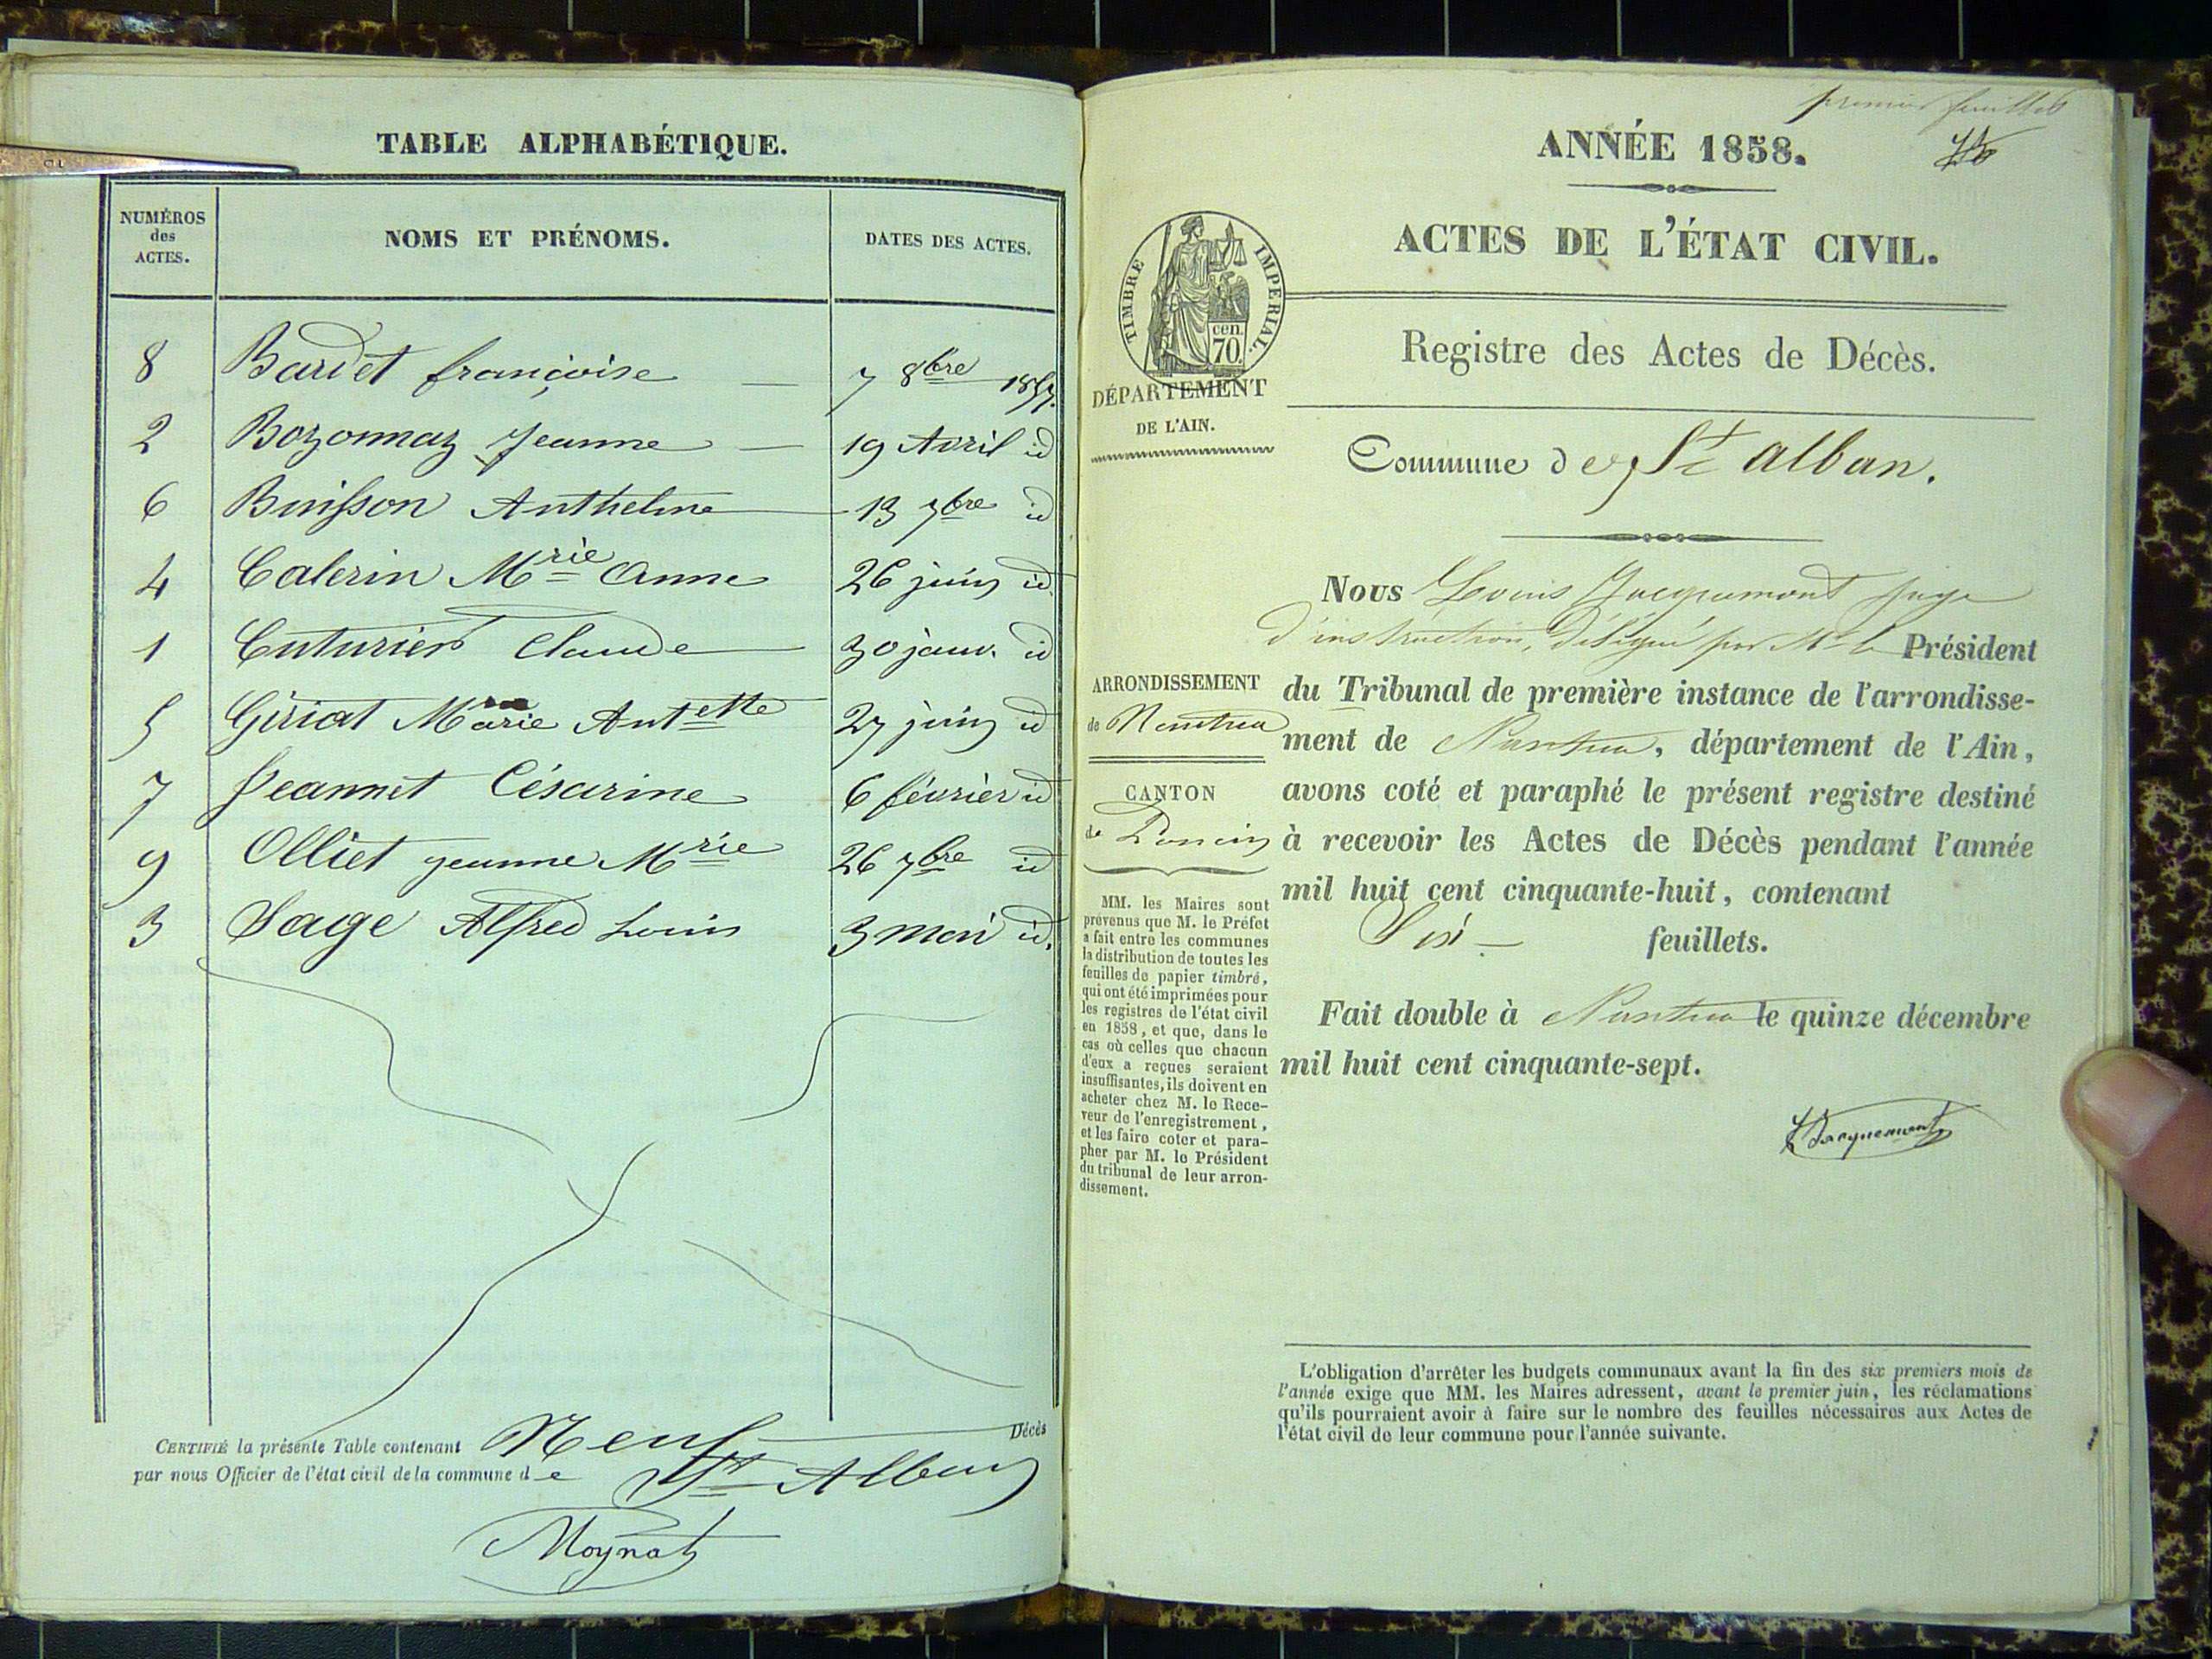 TABLE ALPHABÉTIQUE.
NUMÉROS
des
ACTES.
NOMS ET PRÉNOMS.
DATES DES ACTES.
8 Bardet françoise 7 8bre 1857.
2 Bozonnaz Jeanne 19 Avril id
6 Buisson Anthelme 13 7bre id
4 Calerin Mrie Anne 26 juin id.
1 Cuturier Claude 30 janv. id
5 Giriat Marie Antette 27 juin id
7 Jeannet Césarine 6 février id
9 Olliet jeanne Mrie 26 7bre id
3 Sage Alfred Louis 3 mai id.
CERTIFIÉ la présente Table contenant Neuf Décès
par nous Officier de l'état civil de la commune de St Alban
Moynat
premier feuillet
ANNÉE 1858.
ACTES DE L'ÉTAT CIVIL.
TIMBRE IMPERIAL.
cen.
70.
DÉPARTEMENT
DE L'AIN.
Registre des Actes de Décès.
Commune de St alban.
Nous Louis Jacquemont juge
d'instruction, délégué par Mr le Président
du Tribunal de première instance de l'arrondisse-
ment de Nantua, département de l'Ain,
avons coté et paraphé le présent registre destiné
à recevoir les Actes de Décès pendant l'année
mil huit cent cinquante-huit, contenant
Six feuillets.
Fait double à Nantua le quinze décembre
mil huit cent cinquante-sept.
Jacquemont
ARRONDISSEMENT
de Nantua
CANTON
de Poncin
MM. les Maires sont
prévenus que M. le Préfet
a fait entre les communes
la distribution de toutes les
feuilles de papier timbré,
qui ont été imprimées pour
les registres de l'état civil
en 1858, et que, dans le
cas où celles que chacun
d'eux a reçues seraient
insuffisantes, ils doivent en
acheter chez M. le Rece-
veur de l'enregistrement,
et les faire coter et para-
pher par M. le Président
du tribunal de leur arron-
dissement.
L'obligation d'arrêter les budgets communaux avant la fin des six premiers mois de
l'année exige que MM. les Maires adressent, avant le premier juin, les réclamations
qu'ils pourraient avoir à faire sur le nombre des feuilles nécessaires aux Actes de
l'état civil de leur commune pour l'année suivante.